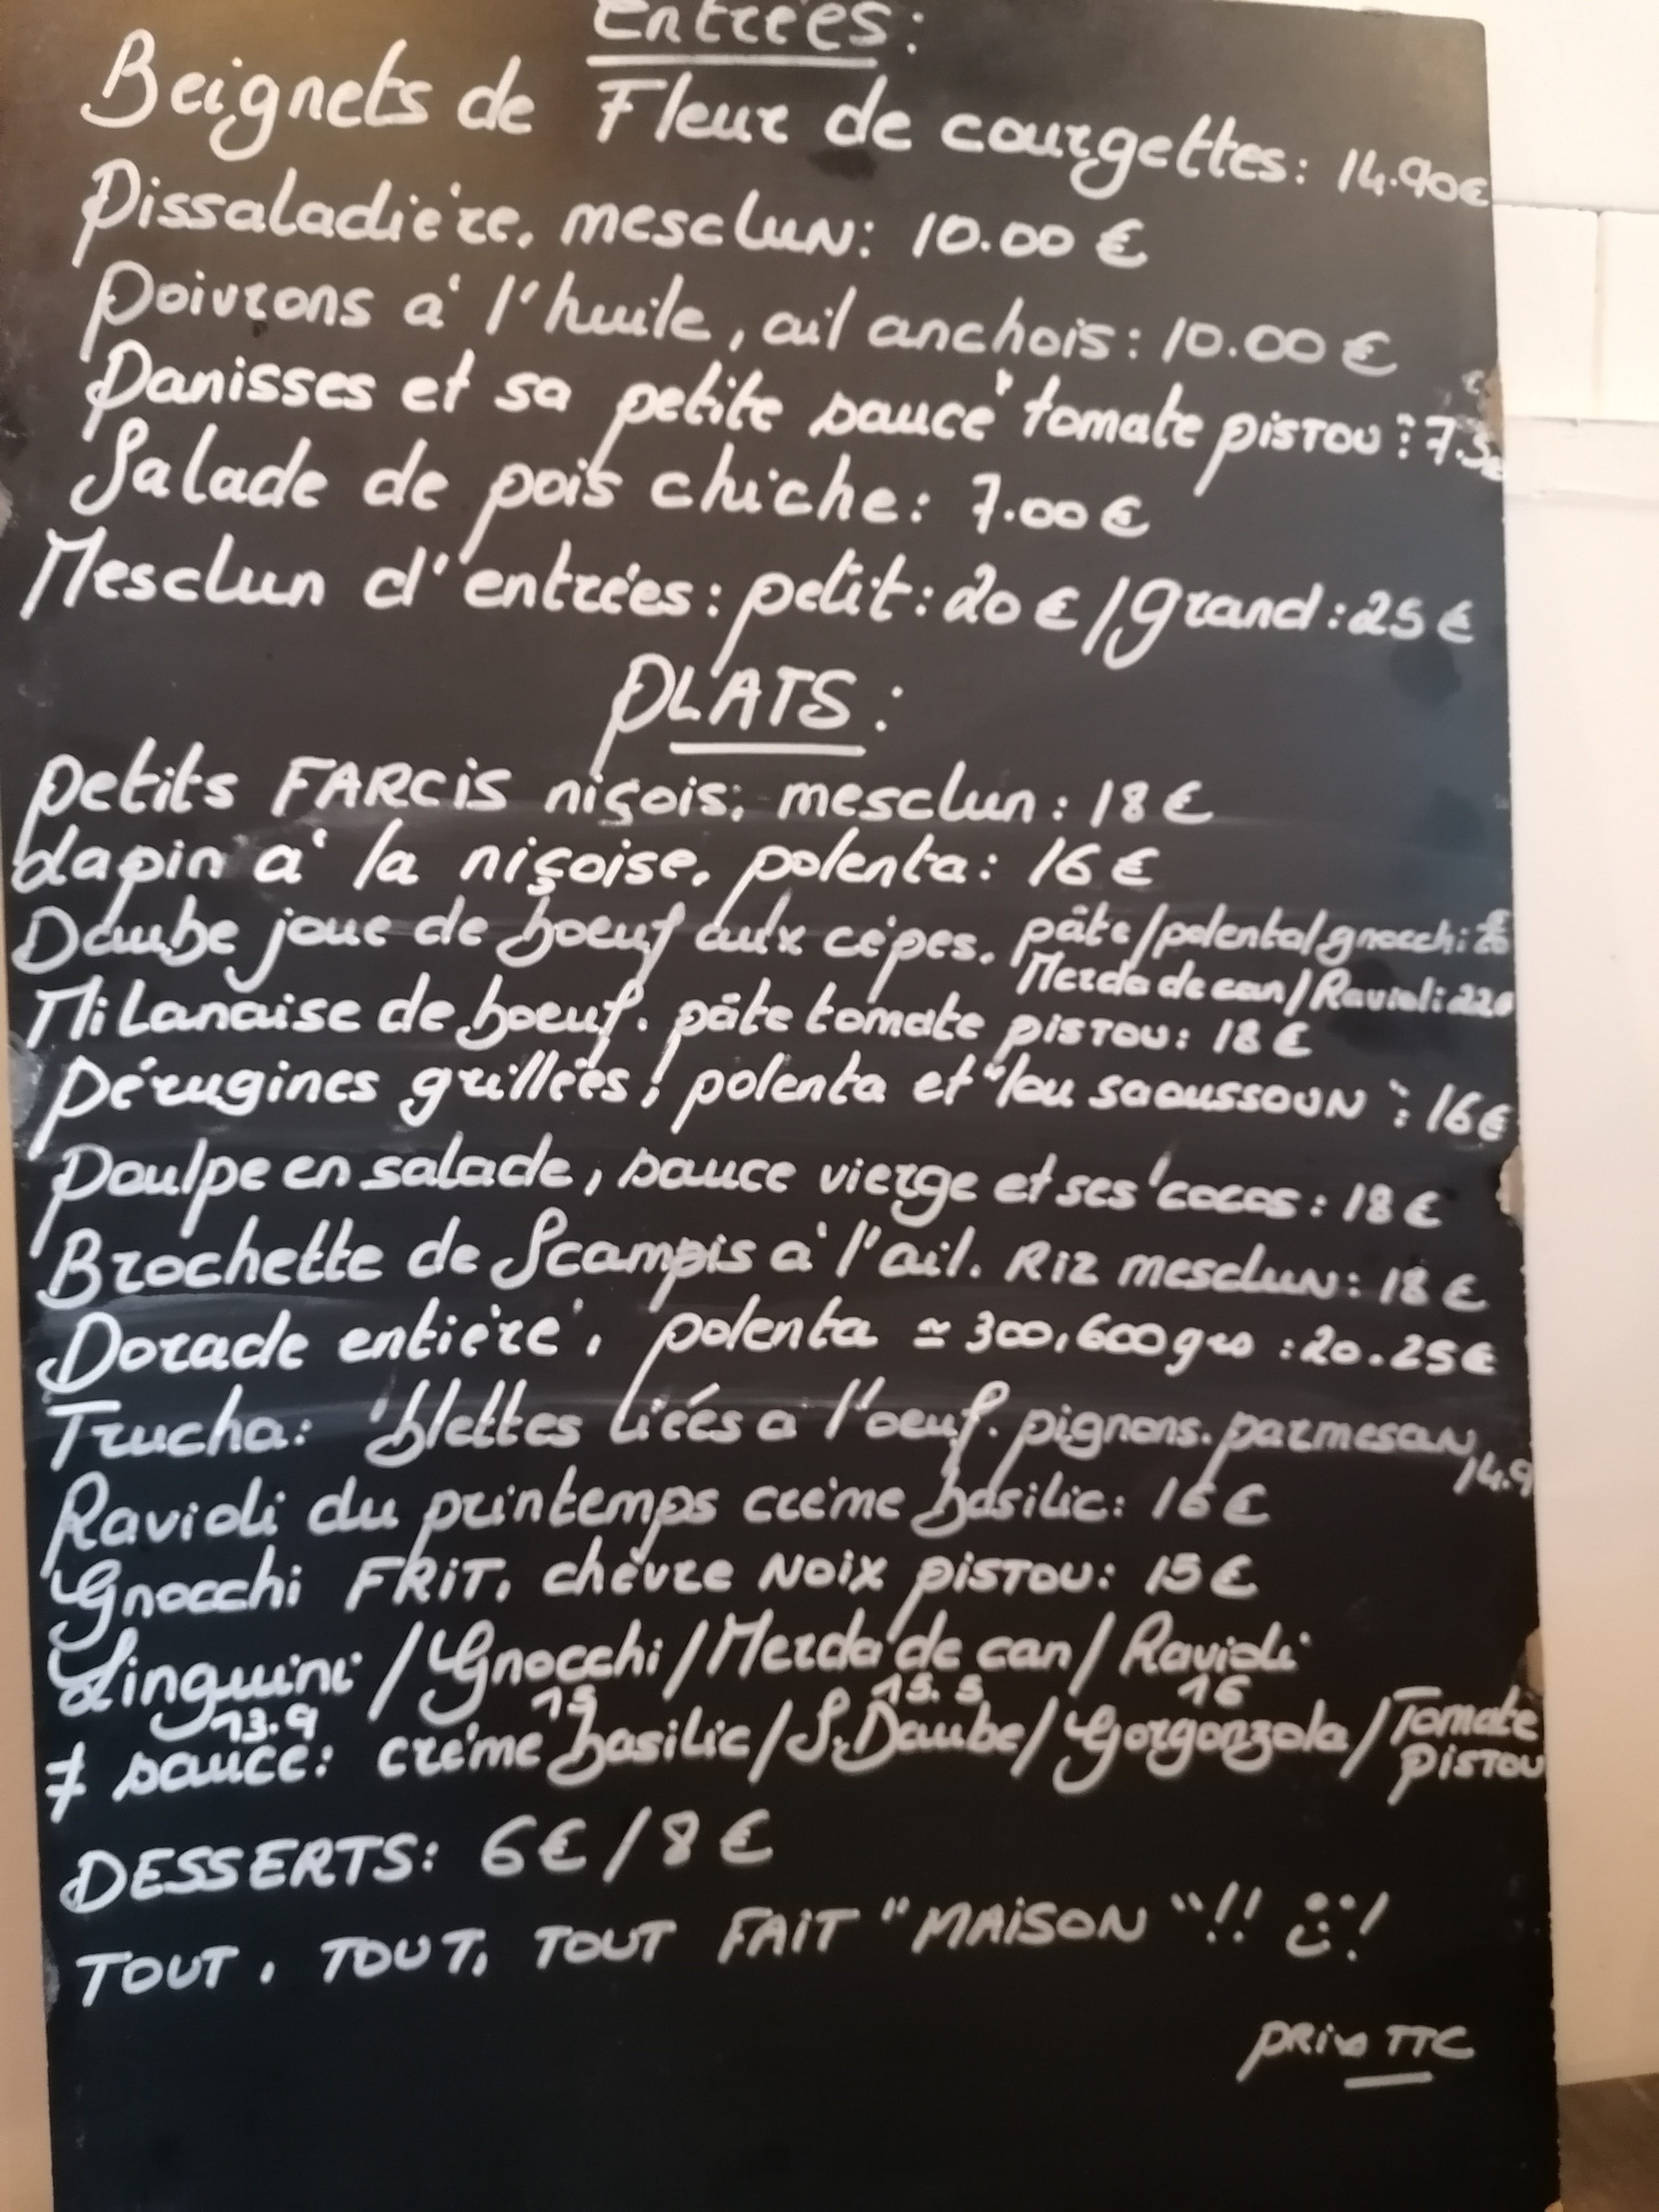 Entrées:
Beignets de Fleur de courgettes: 14.90€
Pissaladière, mesclun: 10.00 €
Poivrons à l'huile, ail anchois: 10.00 €
Panisses et sa petite sauce tomate pistou: 7.5
Salade de pois chiche: 7.00 €
Mesclun d'entrées: petit: 20 € / grand: 25 €
PLATS:
petits FARCIS niçois, mesclun: 18 €
Lapin à la niçoise, polenta: 16 €
Daube joue de boeuf aux cèpes. pâte/polenta/gnocchi:
Merda de can/Ravioli: 22€
Milanaise de boeuf. pâte tomate pistou: 18 €
Pérugines grillées, polenta et "lou saoussoun": 16€
Poulpe en salade, sauce vierge et ses cocos: 18 €
Brochette de Scampis à l'ail. Riz mesclun: 18 €
Dorade entière, polenta ≃ 300,600grs: 20.25€
Trucha: blettes liées a l'oeuf. pignons. parmesan,
14.9
Ravioli du printemps crème basilic: 16 €
Gnocchi FRIT, chèvre NOIX pistou: 15 €
Linguini / Gnocchi / Merda de can / Ravioli
13.9 15 15.5 16
≠ sauce: crème basilic / S.Daube / Gorgonzola / Tomate
pistou
DESSERTS: 6€ / 8 €
TOUT, TOUT, TOUT FAIT "MAISON"!! !
prix TTC